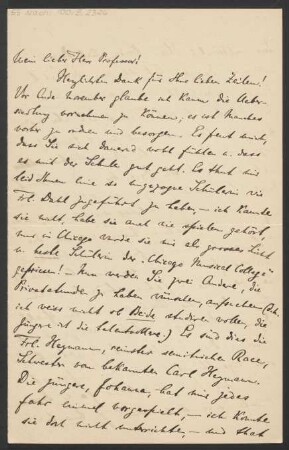 Mein lieber Herr Professor!
Herzlichsten Dank für Ihre lieben Zeilen!
Vor Ende November glaube ich kaum die Ueber-
siedlung vornehmen zu können, es ist Manches
vorher zu ordnen und besorgen. Es freut mich,
dass Sie sich dauernd wohl fühlen u. dass
es mit der Schule gut geht. Es thut mir
leid Ihnen eine so ungezogene Schülerin wie
Frl. Dahl zugeführt zu haben, – ich kannte
sie nicht, habe sie auch nie spielen gehört
nur in Chicago wurde sie mir als grosses Licht
u. beste Schülerin des „Chicago Musical College"
gepriesen! – Nun werden Sie zwei Andere, die
Privatstunde zu haben wünschen,
ich weiss nicht ob Beide studiren wollen, die
Jüngere ist die talentvollere.) Es sind dies die
Frl. Heymann, reinster semitischer Race,
Schwester vom bekannten Carl Heymann.
Die jüngere, Johanna, hat mir jedes
Jahr einmal vorgespielt, – ich konnte
sie dort nicht unterrichten, – und that